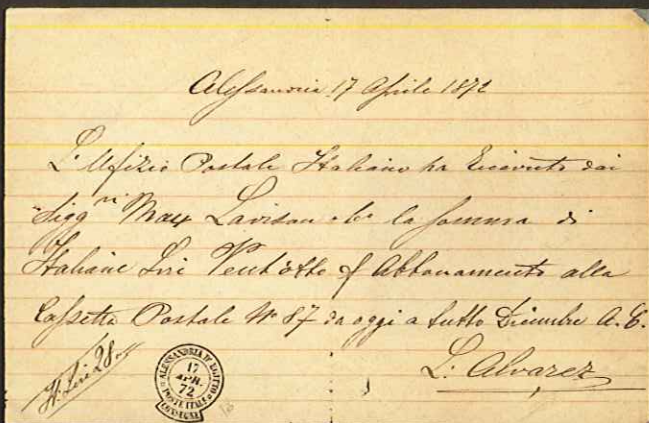 Alessandria 17 Aprile 1872
L'Ufizio Postale Italiano ha Ricevuto dai
Sigg.ri Max Lavison & Co la somma di
Italiane Lire Vent'otto p Abbonamento alla
Cassetta Postale No 87 da oggi a tutto Dicembre A.C.
It. Lire 28
L. Alvarez
ALESSANDRIA D'EGITTO
17
APR.
72
POSTE ITALIANE